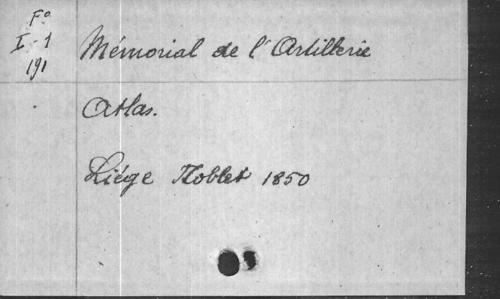 Fo
I-1
191
Mémorial de l'Artillerie
Atlas.
Liége Noblet 1850